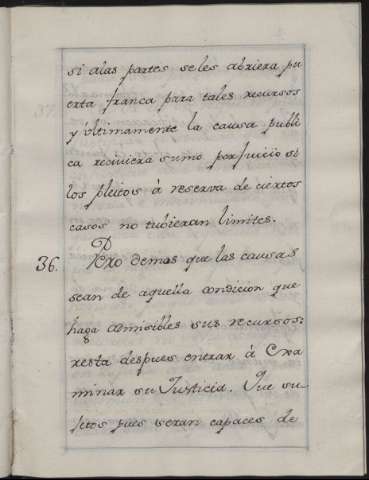 si alas partes seles abriera pu
erta franca para tales recursos
y ultimamente la causa publi
ca reciviera sumo perjuicio si
los pleitos à reserva de ciertos
casos no tubieran limites.
36. Pero demos que las causas
sean de aquella condicion que
haga admisibles sus recursos:
resta despues entrar à Exa
minar su Justicia. Que su
jetos pues seran capaces de